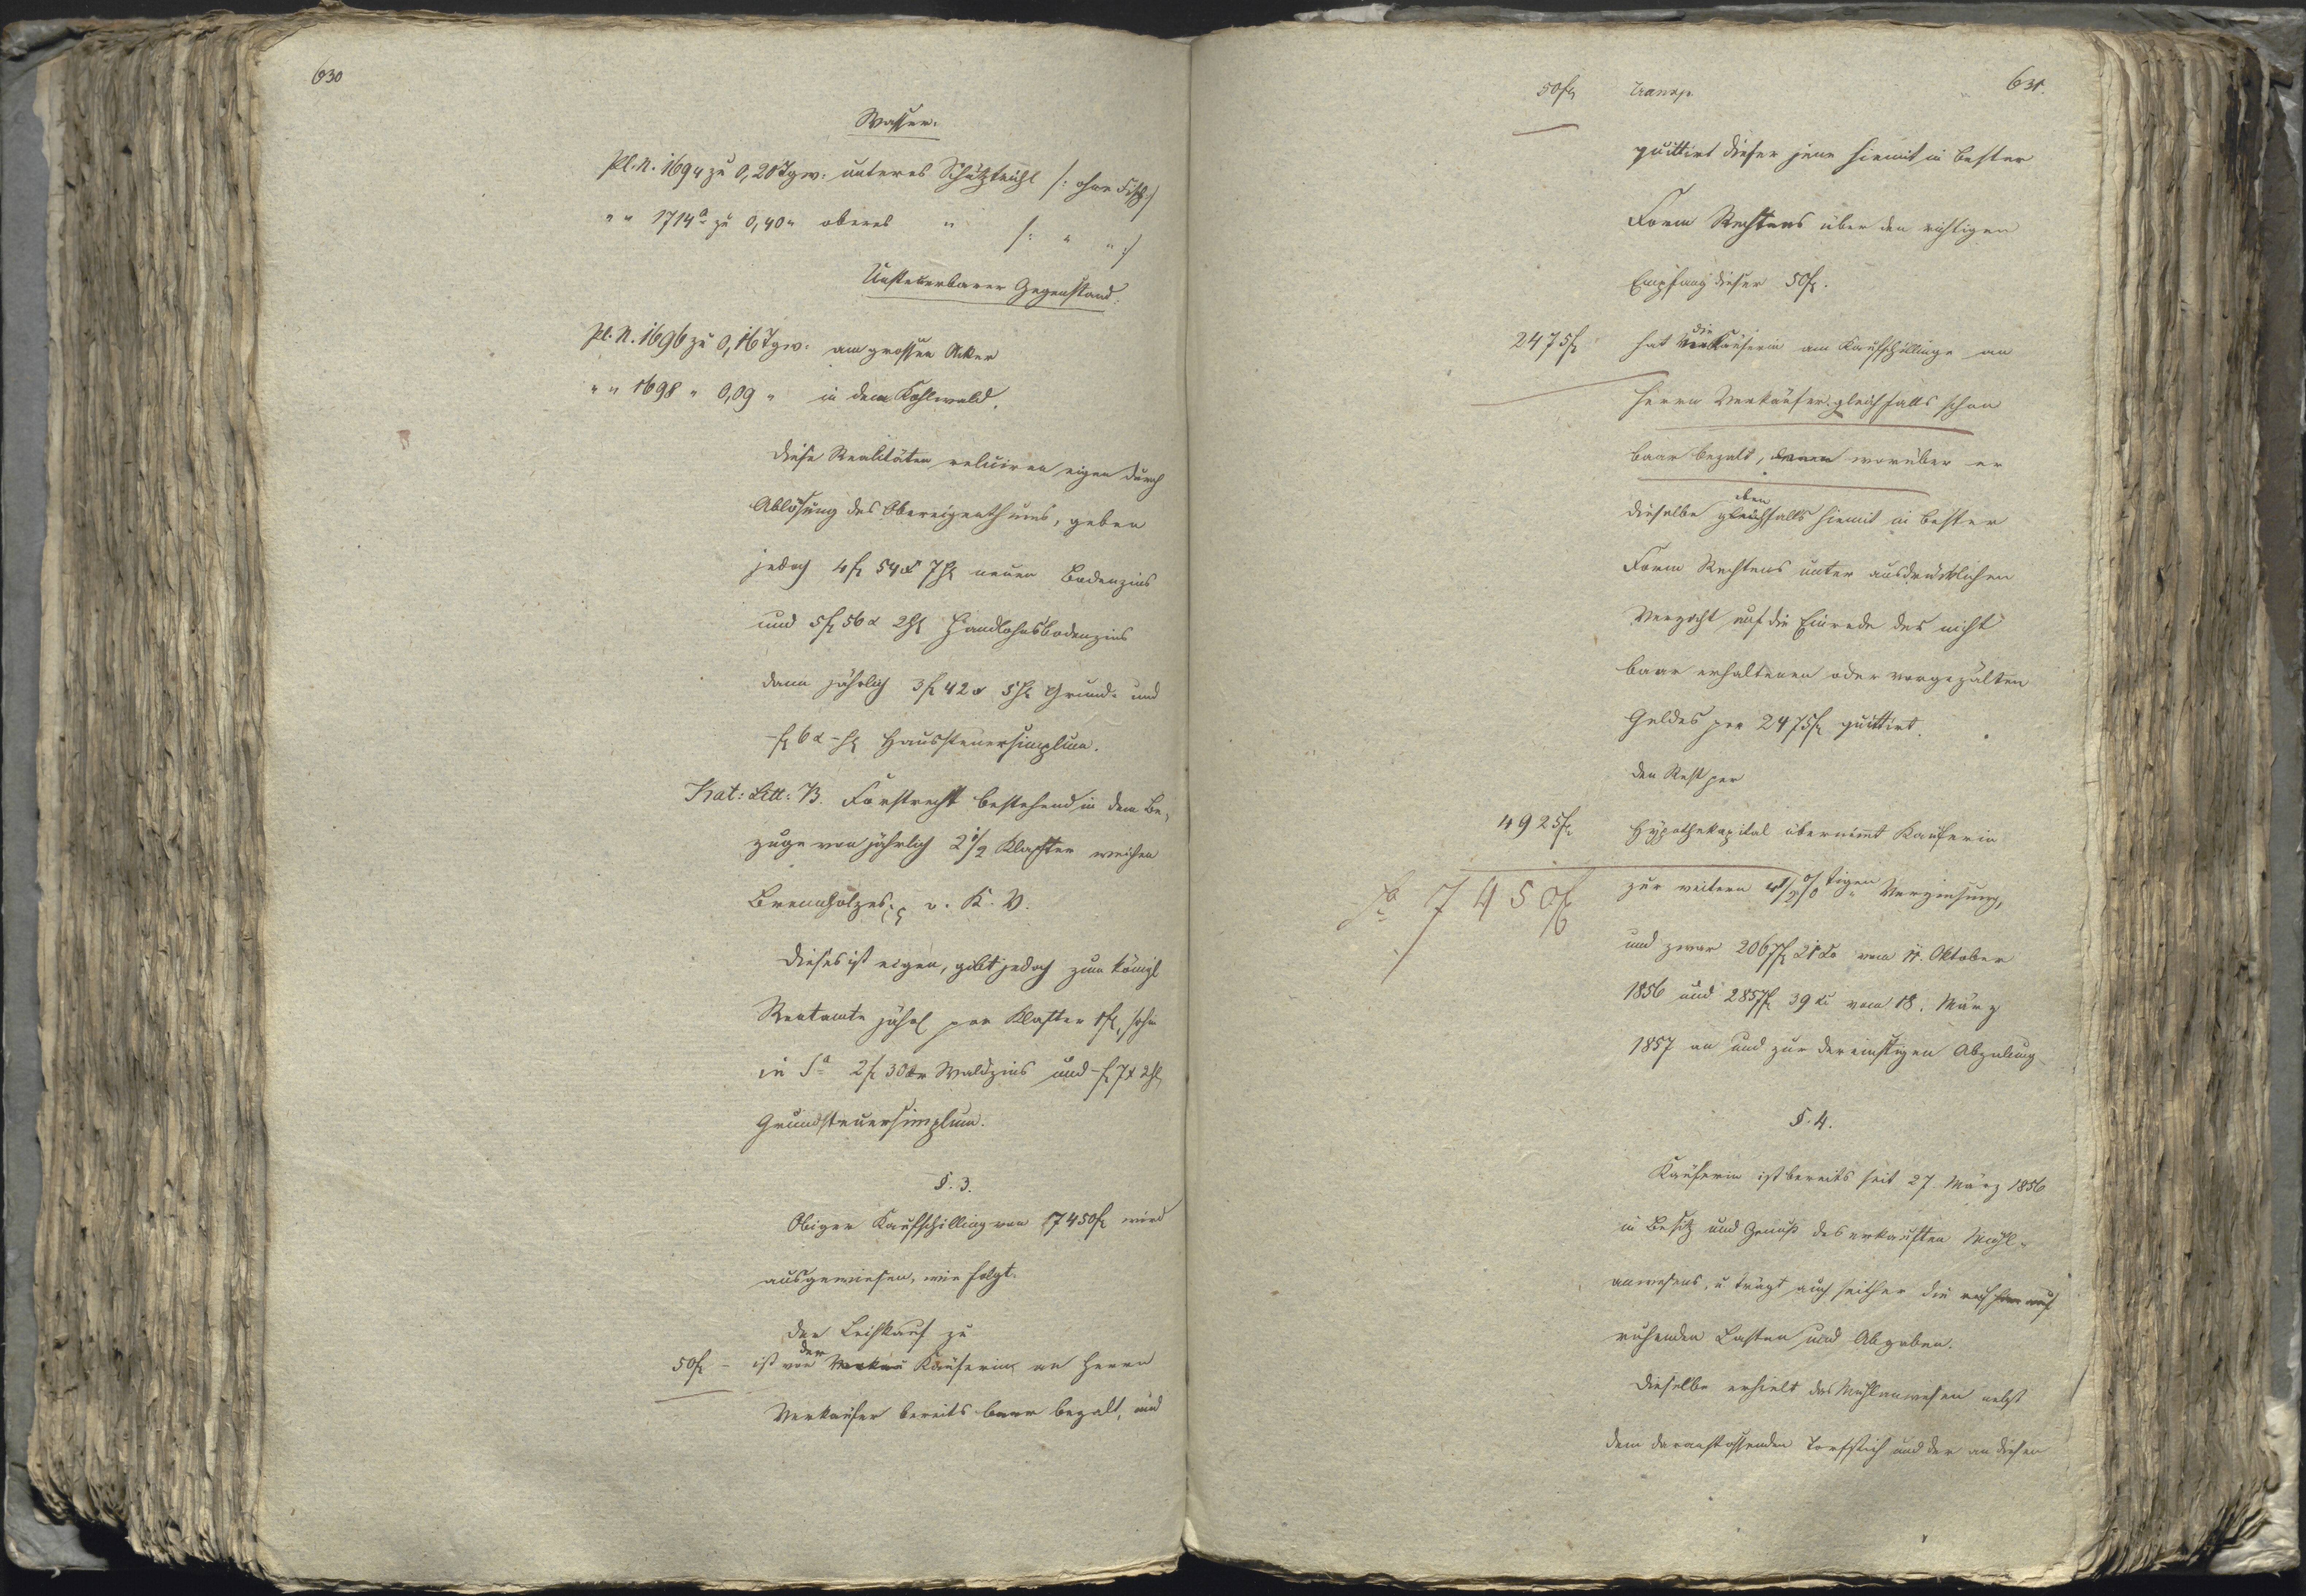 630
Wasser.
Pl. N. 1694 zu 0,20 Tgw. unteres Schützteichl /: ohne Fisch :/
" " 1714a zu 0,40 " oberes " /: " " :/
Unsteuerbarer Gegenstand.
Pl. N. 1696 zu 0,16 Tgw. am grossen Acker
" " 1698 " 0,09 " in dem Kohlwald.
Diese Realitäten eigen durch
Ablösung des Obereigenthums, geben
jedoch 4 fl 54 x 7 hl neuen Bodenzins
und 5 fl 56 x 2 hl Handlohnsbodenzins
dann jährlich 3 fl 42 x 5 hl Grund- und
- fl 6 x - hl Haussteuersimplum.
Kat: Litt: B. Forstrecht bestehend in dem Be-
zuge von jährlich 2 1/2 Klafter weichen
Brennholzes v. K. V.
Dieses ist eigen, gibt jedoch zum königl
Rentamte jährl per Klafter 1 fl, sohin
in Sa 2 fl 30 kr Waldzins und - fl 7 x 2 hl
Grundsteuersimplum.
§. 3.
Obiger Kaufschilling von 7450 fl wird
ausgewiesen, wie folgt.
Der Leihkauf zu
50 fl - ist von der Verkäu Käuferin an Herrn
Verkäufer bereits baar bezalt, und
631.
50 fl Transp.
quittirt dieser jene hiemit in bester
Form Rechtens über den richtigen
Empfang dieser 50 fl.
2475 fl hat die Käuferin am Kaufschillinge an
Herrn Verkäufer gleichfalls schon
baar bezalt, worüber er
dieselbe gleichfalls eben hiemit in bester
Form Rechtens unter ausdrücklichen
Verzicht auf die Einrede des nicht
baar erhaltenen oder vorgezälten
Geldes per 2475 fl quittirt.
Den Rest per
4925 fl Hypothekapital übernimt Käuferin
zur weitern 4 1/2 % tigen Verzinsung,
Sa 7450 fl
und zwar 2067 fl 21 kr vom 11. Oktober
1856 und 2857 fl 39 kr vom 18. März
1857 an und zur dereinstigen Abzalung
§. 4.
Käuferin ist bereits seit 27. März 1856
in Besitz und Genuß des erkauften Mühl-
anwesens, u trägt auch seither die auf
ruhenden Lasten und Abgaben.
Dieselbe erhielt das Mühlanwesen nebst
dem daranstossenden Torfstich und der an diesen